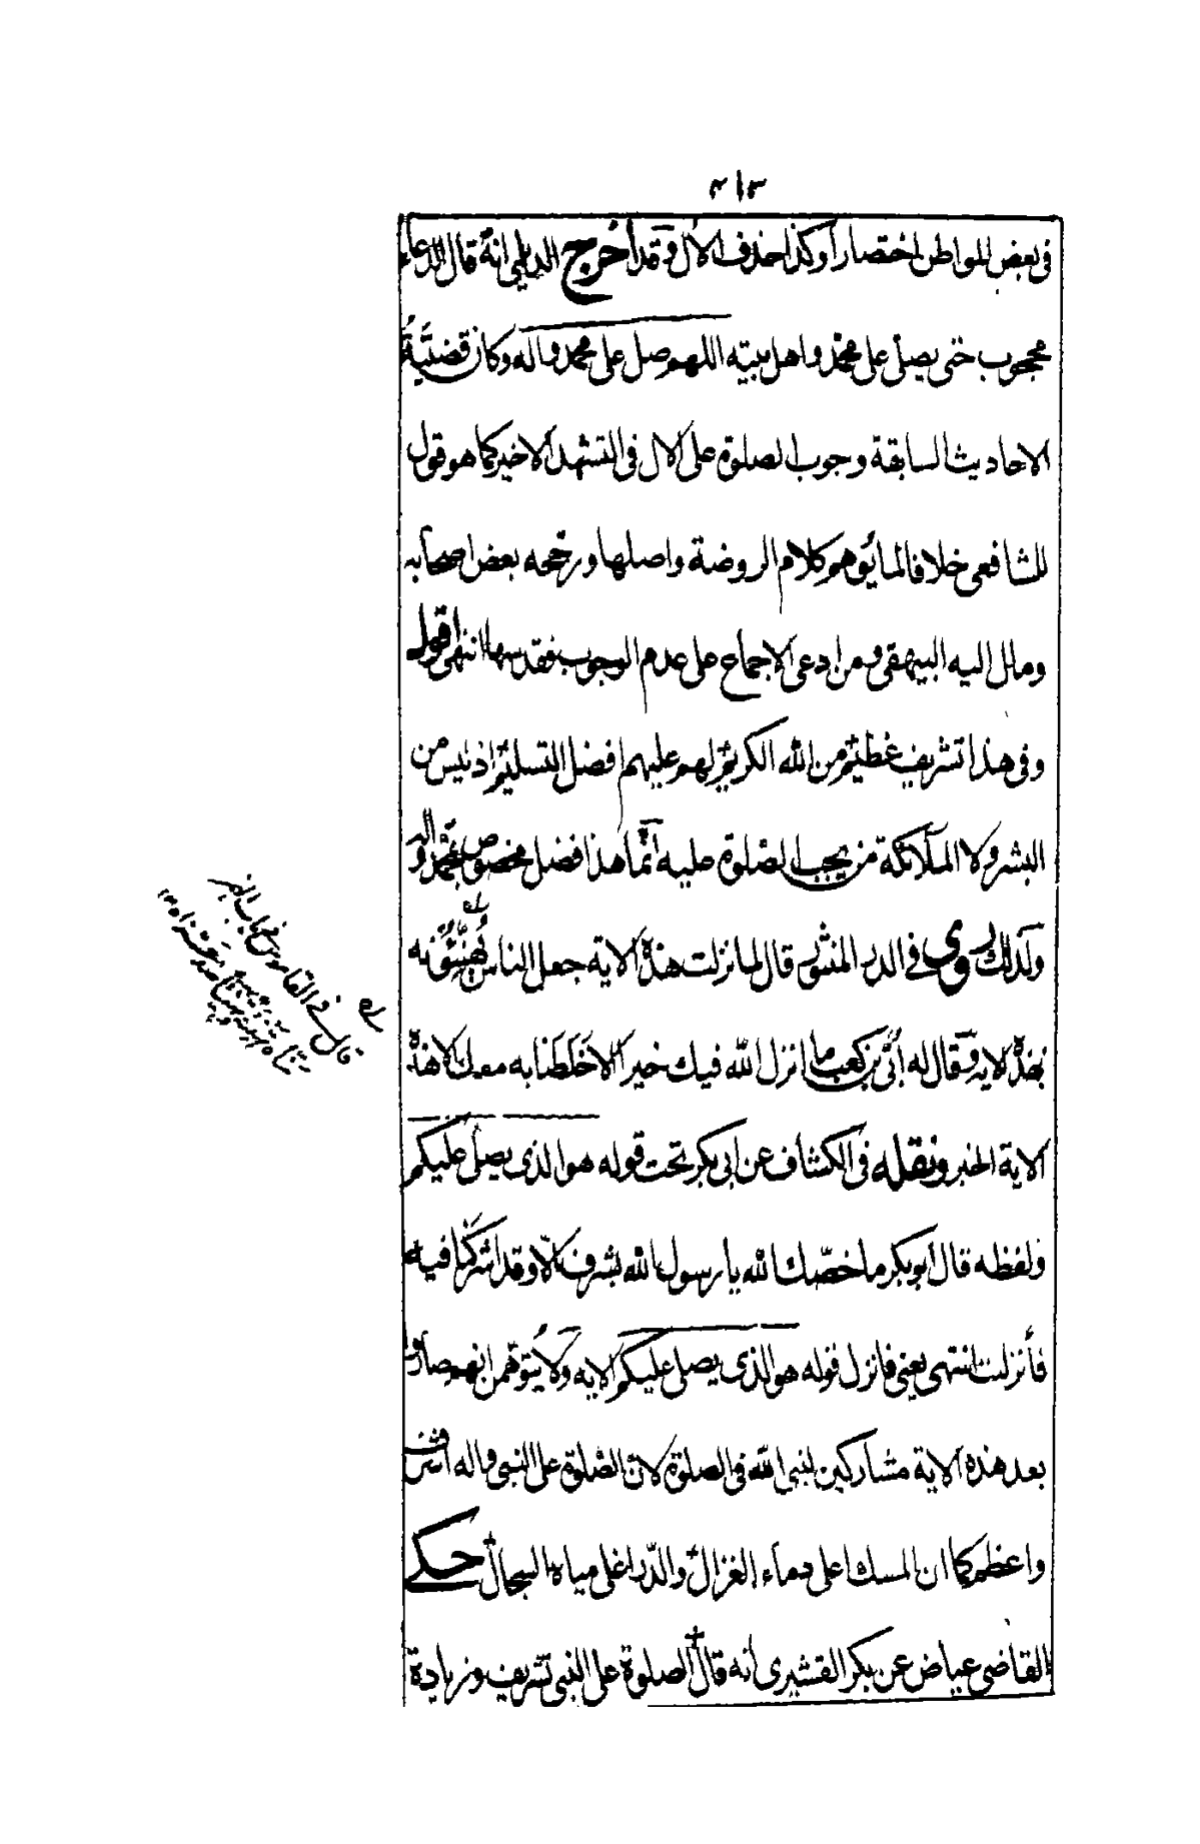 ٣١٣
فى بعض المواطن اختصارا وكذا حذف الآل وقد اخرج الديلمى انه قال الدعاء
محجوب حتى يصلى على محمد واهل بيته اللهم صل على محمد واله وكان قضيّة
الاحاديث السابقة وجوب الصلوة على الال فى التشهد الاخير كما هو قول
للشافعى خلافا لما يوهمه كلام الروضة واصلها ورجحه بعض اصحابه
ومال اليه البيهقى ومن ادعى الاجماع على عدم الوجوب فقد سها انتهى اقول
وفى هذا تشريف عظيم من الله الكريم لهم عليهم افضل التسليم اذ ليس من
البشر ولا الملائكة من يجب الصلوة عليه انما هذا فضل مخصوص بمحمد واله
ولذلك روى فى الدر المنثور قال لما نزلت هذه الاية جعل الناس يُهنّئونه
بهذه الاية وقال له اُبَىّ بن كعب ما انزل الله فيك خيرا الا خلطنا به معك الا هذه
الاية الخبر ونقله فى الكشاف عن ابى بكر تحت قوله هو الذى يصلى عليكم
ولفظه قال ابو بكر ما خصّك الله يا رسول الله بشرف الّا وقد اشركنا فيه
فأنزلت انتهى يعنى فانزل قوله هو الذى يصلى عليكم الاية ولا يتوهمن انهم صاروا
بعد هذه الاية مشاركين لنبى الله فى الصلوة لان الصّلوة على النبى واله اشرف
واعظم كما ان المسك اعلى دماء الغزال والدّر اغلى مياه السجال حكى
القاضى عياض عن بكر القشيرى انه قال الصلوة على النبى تشريف وزيادة
قال فى القاموس فى باب